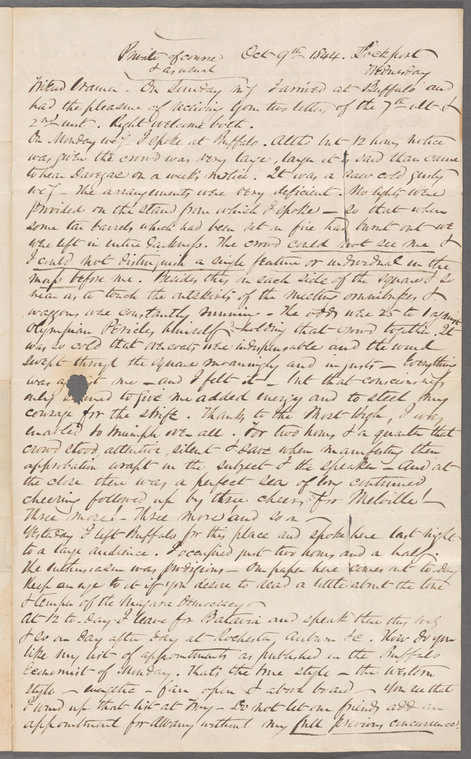 Private of course Oct 9th 1844. Lockport
& as usual Wednesday
On Sunday m'g I arrived at Buffalo and
had the pleasure of receiving your two letters of the 7th ult &
2nd inst. Right welcome both.
On Monday ev'g I spoke at Buffalo. Altho but 12 hours notice
was given the crowd was very large, larger it is said than came
to hear on a week's notice. It was a raw cold gusty
ev'g - The arrangements were very deficient. No lights were
provided on the stand from which I spoke - so that when
some tar barrels which had been set on fire had burnt out we
were left in entire darkness. The crowd could not see me &
I could not distinguish a single feature or individual in the
mass before me. Besides this on each side of the square & so
near as to touch the outskirts of the meeting omnibusses &
wagons were constantly running - The odds were 25 to 1 against
Olympian Pericles himself holding that crowd together. It
was so cold that overcoats were indispensable and the wind
swept through the square moaningly and in gusts - Everything
was me - and I felt it - but that consciousness
only to give me added energy and to steel my
courage for the strife. Thanks to the Most High, I was
enabled to triumph over all. For two hours & a quarter that
crowd stood attentive, silent & save when manifesting their
approbation wrapt in the subject & the speaker - And at
the close there was a perfect sea of long continued
cheering followed up by three cheers for Melville! -
Three more! - Three more! and so on -
Yesterday I left Buffalo for this place and spoke here last night
to a large audience. I occupied just two hours and a half.
The enthusiasm was prodigious - One paper here comes out to day
Keep an eye to it if you desire to read a little about the tone
& temper of the Niagara Democracy
At 12 to-day I leave for Batavia and speak there this ev'g
& so on day after day at Rochester, Auburn &c. How do you
like my list of appointments as published in the Buffalo
Economist of Monday. That's the true style - the western
style - - fair, open & above board - You see that
I wind up that list at Troy - Do not let our friends add an
appointment for Albany without my full previous concurrence!